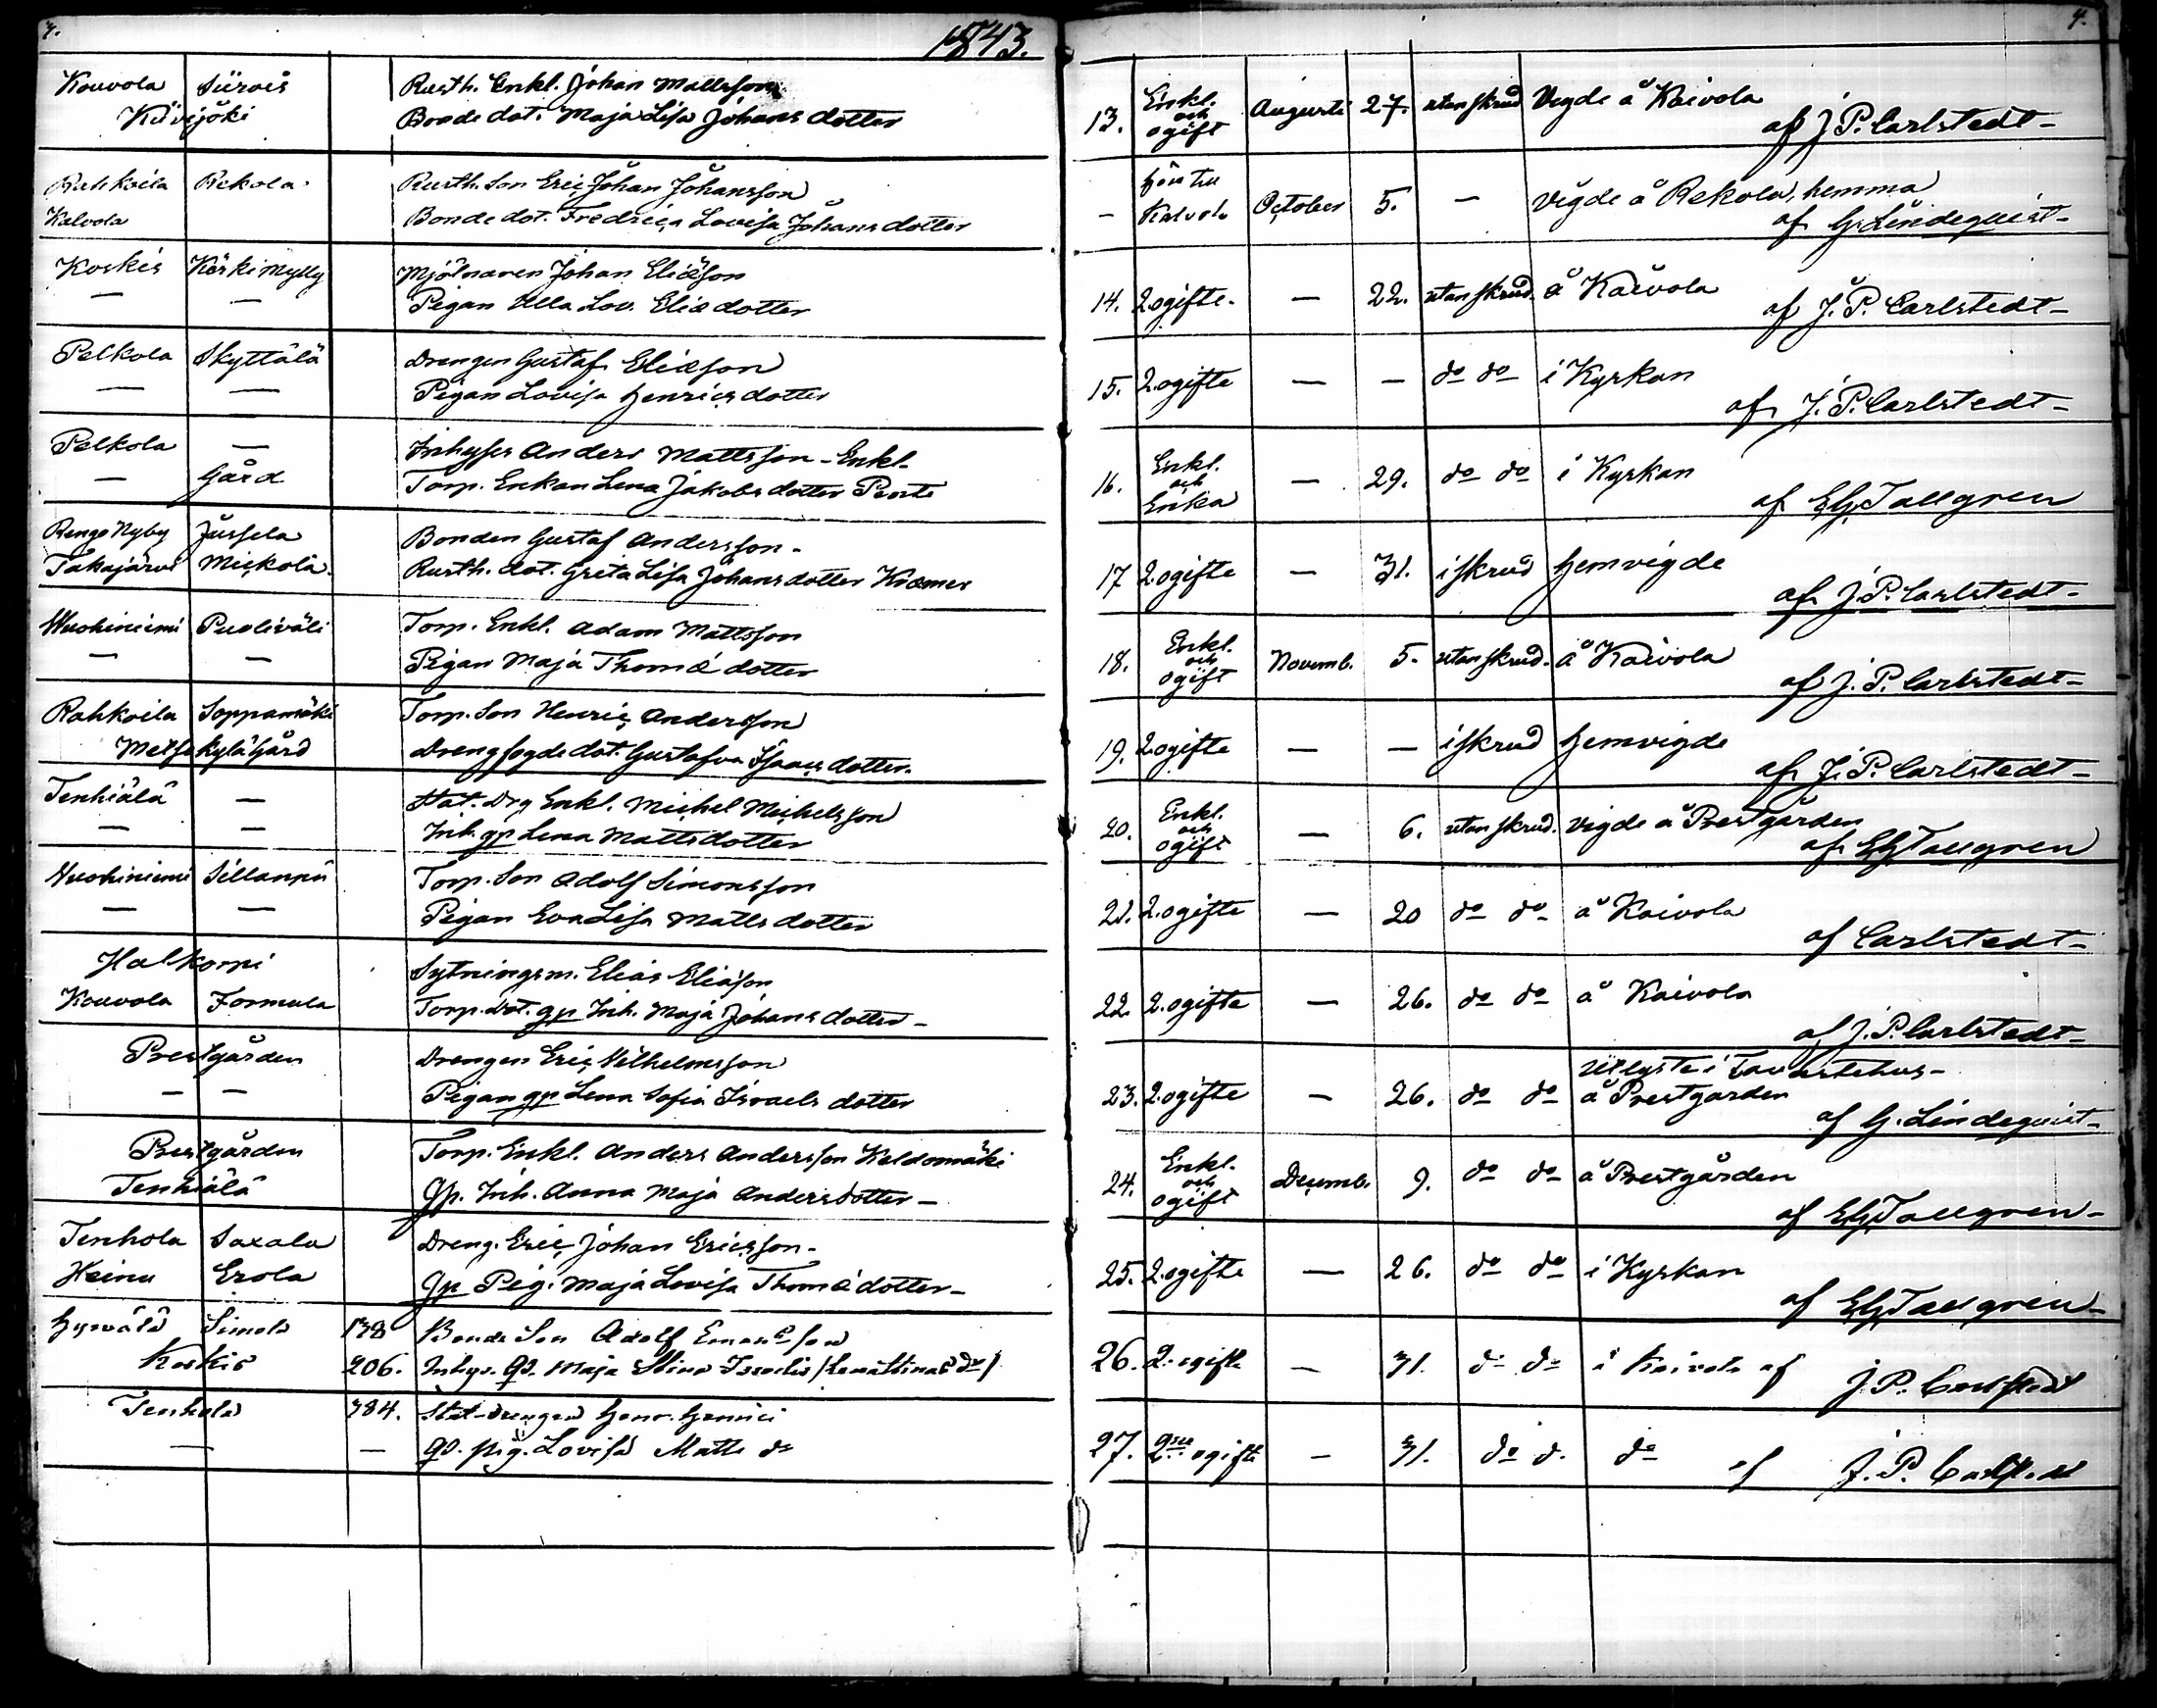 4.
1843.
Kouvola Siirois Rusth. Enkl. Johan Mattsson
Kivijöki Bonde dot. Maja Lisa Johans dotter
Rahkoila Rekola Rusth. Son Eric Johan Johansson
Kalvola Bonde dot. Fredrica Lovisa Johans dotter
Koskis Koskimylly Mjölnaren Johan Eliæson
— — Pigan Ulla Lov. Eliæ dotter
Pelkola Skyttälä Drengen Gustaf Eliæson
— — Pigan Lovisa Henrics dotter
Pelkola — Inhyses Anders Mattsson - Enkl.
— Gård Torp. Enkan Lena Jakobs dotter
Rengo Nyby Jussela Bonden Gustaf Andersson -
Takajärvi Mickola Rusth. dot. Greta Lisa Johans dotter
Wuohiniemi Puoliväli Torp. Enkl. Adam Mattsson
— — Pigan Maja Thomæ dotter
Rahkoila Soppamäki Torp. Son Henric Andersson
Metsäkylä Gård Drengfogde dot. Gustafva Isaacs dotter.
Tenhiälä — Stat. Drg Enkl. Michel Michelsson
— — Inh. gp Lena Matts dotter
Wuohiniemi Sillanpä Torp. Son Adolf Simonsson
— — Pigan Eva Lisa Matts dotter
Halkorpi Sytningsm. Elias Eliæson
Kouvola Formula Torp. dot. gp Inh. Maja Johans dotter -
Prestgården Drengen Eric Vilhelmsson
— — Pigan gp Lena Sofia Israels dotter
Prestgården Torp. Enkl. Anders Andersson Keldomäki
Tenhiälä Gp. Inh. Anna Maja Andersdotter -
Tenhola Saxala Dreng. Eric Johan Ericsson -
Heinu Erola Gp Pig. Maja Lovisa Thomæ dotter -
Hyrvälä Simola 138 Bonde Son Adolf
Koskis 206. Inhys. Qp. Maja Stina
Tenhola 384. Stat-drengen Henr. Henrici
— — Qp. pig. Lovisa Matts dr
4.
13. Enkl. och ogift Augusti 27. utan skrud Vigde å Kaivola
af J. P. Carlstedt -
— för till Kalvola October 5. — Vigde å Rekola, hemma
af G. Lindequist -
14. 2 ogifte. — 22. utan skrud. å Kaivola
af J. P. Carlstedt -
15. 2 ogifte — — do do i Kyrkan
af J. P. Carlstedt -
16. Enkl. och Enka — 29. do do i Kyrkan
af EG Tallgren
17 2 ogifte — 31. i skrud hemvigde
af J. P. Carlstedt -
18. Enkl. och ogift Novemb. 5. utan skrud. å Kaivola
af J. P. Carlstedt -
19. 2 ogifte — — i skrud hemvigde
af J. P. Carlstedt -
20. Enkl. och ogift — 6. utan skrud. vigde å Prestgården
af EG Tallgren
21. 2 ogifte — 20 do do å Kaivola
af Carlstedt -
22. 2 ogifte — 26. do do å Kaivola
af J. P. Carlstedt -
utlyste i Tavastehus -
23. 2 ogifte — 26. do do å Prestgården
af G. Lindequist -
24. Enkl. och ogift Decemb. 9. do do å Prestgården
af EG Tallgren -
25. 2 ogifte — 26. do do i Kyrkan
af EG Tallgren -
26. 2 ogifte — 31. do do å Kaivola af
J. P. Carlstedt
27. 2ne ogifte — 31. do do do
af J. P. Carlstedt